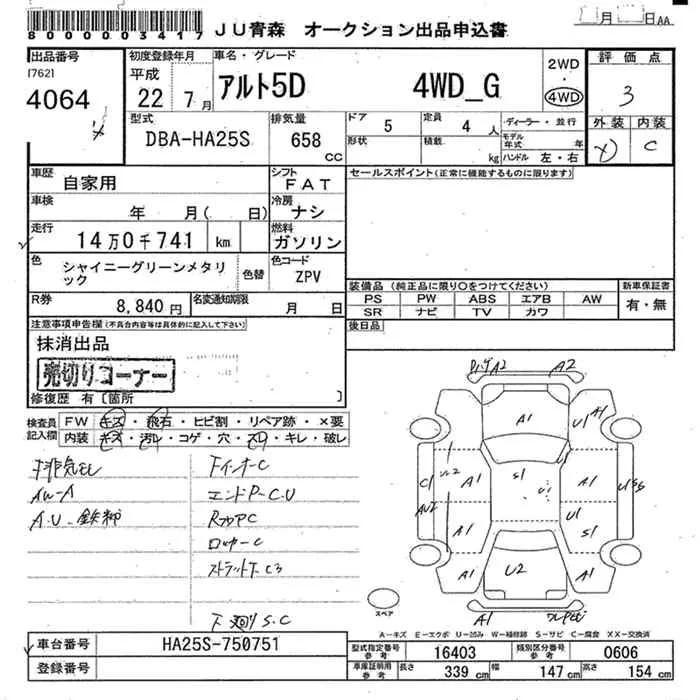 80000003417
JU青森 オークション出品申込書
月 日AA
出品番号
[762]
4064
初度登録年月
平成
22 7月
車名・グレード
アルト5D 4WD_G
2WD
・
4WD
評価点
3
外装 内装
C
型式
DBA-HA25S
排気量
658
CC
ドア 5
形状
定員 4 人
積載 kg
ディーラー・並行
モデル年式 年
ハンドル 左・右
車歴 自家用
シフト FAT
車検 年 月( 日)
冷房 ナシ
走行 14万0千741 km
燃料 ガソリン
色 シャイニーグリーンメタリック
色替
色コード ZPV
R券 8,840円
名変通知期限 月 日
セールスポイント(正常に機能するものに限ります)
装備品(純正品に限り○をつけてください)
新車保証書
PS PW ABS エアB AW
SR ナビ TV カワ
有・無
後日品
注意事項申告欄(不具合内容等は具体的に記入して下さい)
抹消出品
売切りコーナー
修復歴 有〔箇所 〕
検査員記入欄
FW キズ・飛石・ヒビ割・リペア跡・×要
内装 キズ・汚レ・コゲ・穴・スレ・キレ・破レ
排気モレ
AW-A
A.U.鉄粉
FインナーC
エンドP-C.U
RフロアC
ロッカーC
ストラットT C3
下廻りS.C
A2 A2
A1 U1 A1
C1 U2 A1 S1 A1
A1 U1 S1
A1 U2 A1
A1
スペア
A-キズ E-エクボ U-凹み W-補修跡 S-サビ C-腐食 XX-交換済
車台番号 HA25S-750751
登録番号
型式指定番号 参考 16403
類別区分番号 参考 0606
車庫証明用 参考 長さ 339cm 幅 147cm 高さ 154cm